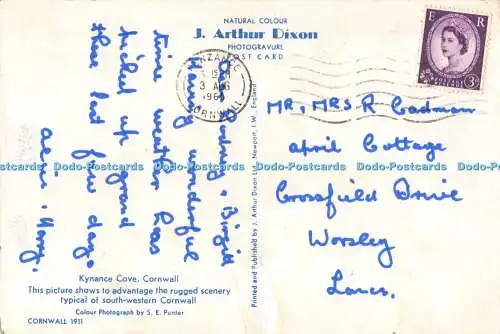 NATURAL COLOUR
J. Arthur Dixon
PHOTOGRAVURE
POST CARD
E R
3D
3 AUG
CORNWALL
Having wonderful
time weather has
picked up grand
these last few days
Mr, Mrs R Cadman
April Cottage
Crossfield Drive
Worsley
Lancs.
Printed and Published by J. Arthur Dixon Ltd., Newport, I.W., England
Dodo-Postcards Dodo-Postcards Dodo-Postcards Dodo-Postcards Dodo-Postcards Dodo-Postcards
Kynance Cove, Cornwall
This picture shows to advantage the rugged scenery
typical of south-western Cornwall
Colour Photograph by S. E. Punter
CORNWALL 1911